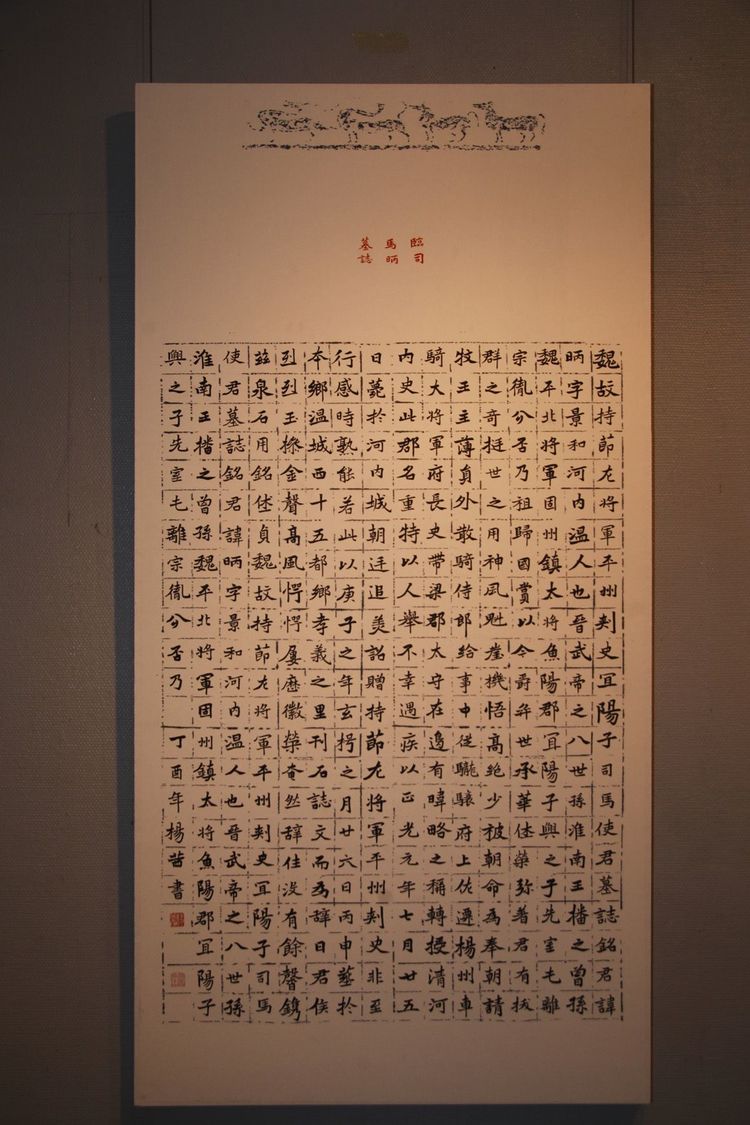 臨司
馬昞
墓誌
魏故持節左將軍平州刾史宜陽子司馬使君墓誌銘君諱
昞字景和河內溫人也晉武帝之八世孫淮南王播之曾孫
魏平北將軍固州鎮太將魚陽郡宜陽子興之子先室乇離
宗胤兮否乃祖歸國賞以今爵弈世承華榮弥著君有拔
群之奇挺世之用神風魁崖機悟高絶少被朝命為奉朝請
牧王主薄員外散騎侍郎給事中從驤府上佐遷楊州車
騎大將軍府長史帶梁郡太守在邊有暐略之稱轉授清河
內史此郡名重特以人舉不幸遇疾以正光元年七月廿五
日薨於河內城朝廷追羙詔贈持節左將軍平州刾史非至
行感時熟能若此以庚子之年玄枵之月廿六日丙申葬於
本鄉溫城西十五都鄉孝義之里刊石誌文而為辞曰君侯
烈烈玉操金聲高風愕愕屢歷徽榮奄然辞住没有餘馨鐫
茲泉石用銘貞魏故持節左將軍平州刾史宜陽子司馬
使君墓誌銘君諱昞字景和河內溫人也晉武帝之八世孫
淮南王播之曾孫魏平北將軍固州鎮太將魚陽郡宜陽子
興之子先室乇離宗胤兮否乃 丁酉年楊書